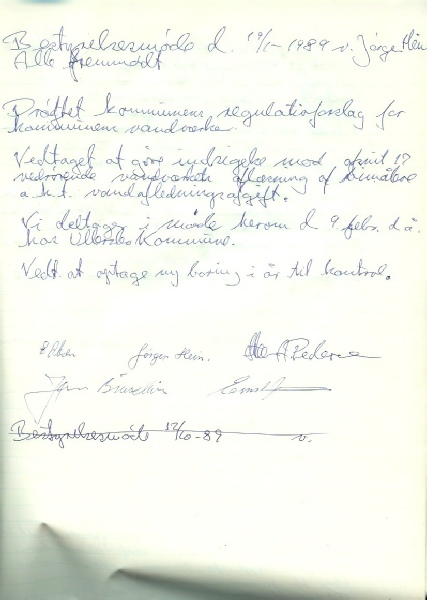 Bestyrelsesmøde d. 19/1-1989 v. Jørgen Hein
Alle fremmødt
Drøftet kommunens regulativforslag for
kommunens vandværker.
Vedtaget at gøre indsigelse mod afsnit 17
vedrørende vandværkets aflæsning af bimålere
a.h.t. vandafledningsafgift.
Vi deltager i møde herom d. 9. febr. d.å.
hos Ullerslev Kommune.
Vedt. at optage ny boring i år til kontrol.
Jørgen Hein. A. Pedersen
Bestyrelsesmøde 12/10-89 v.